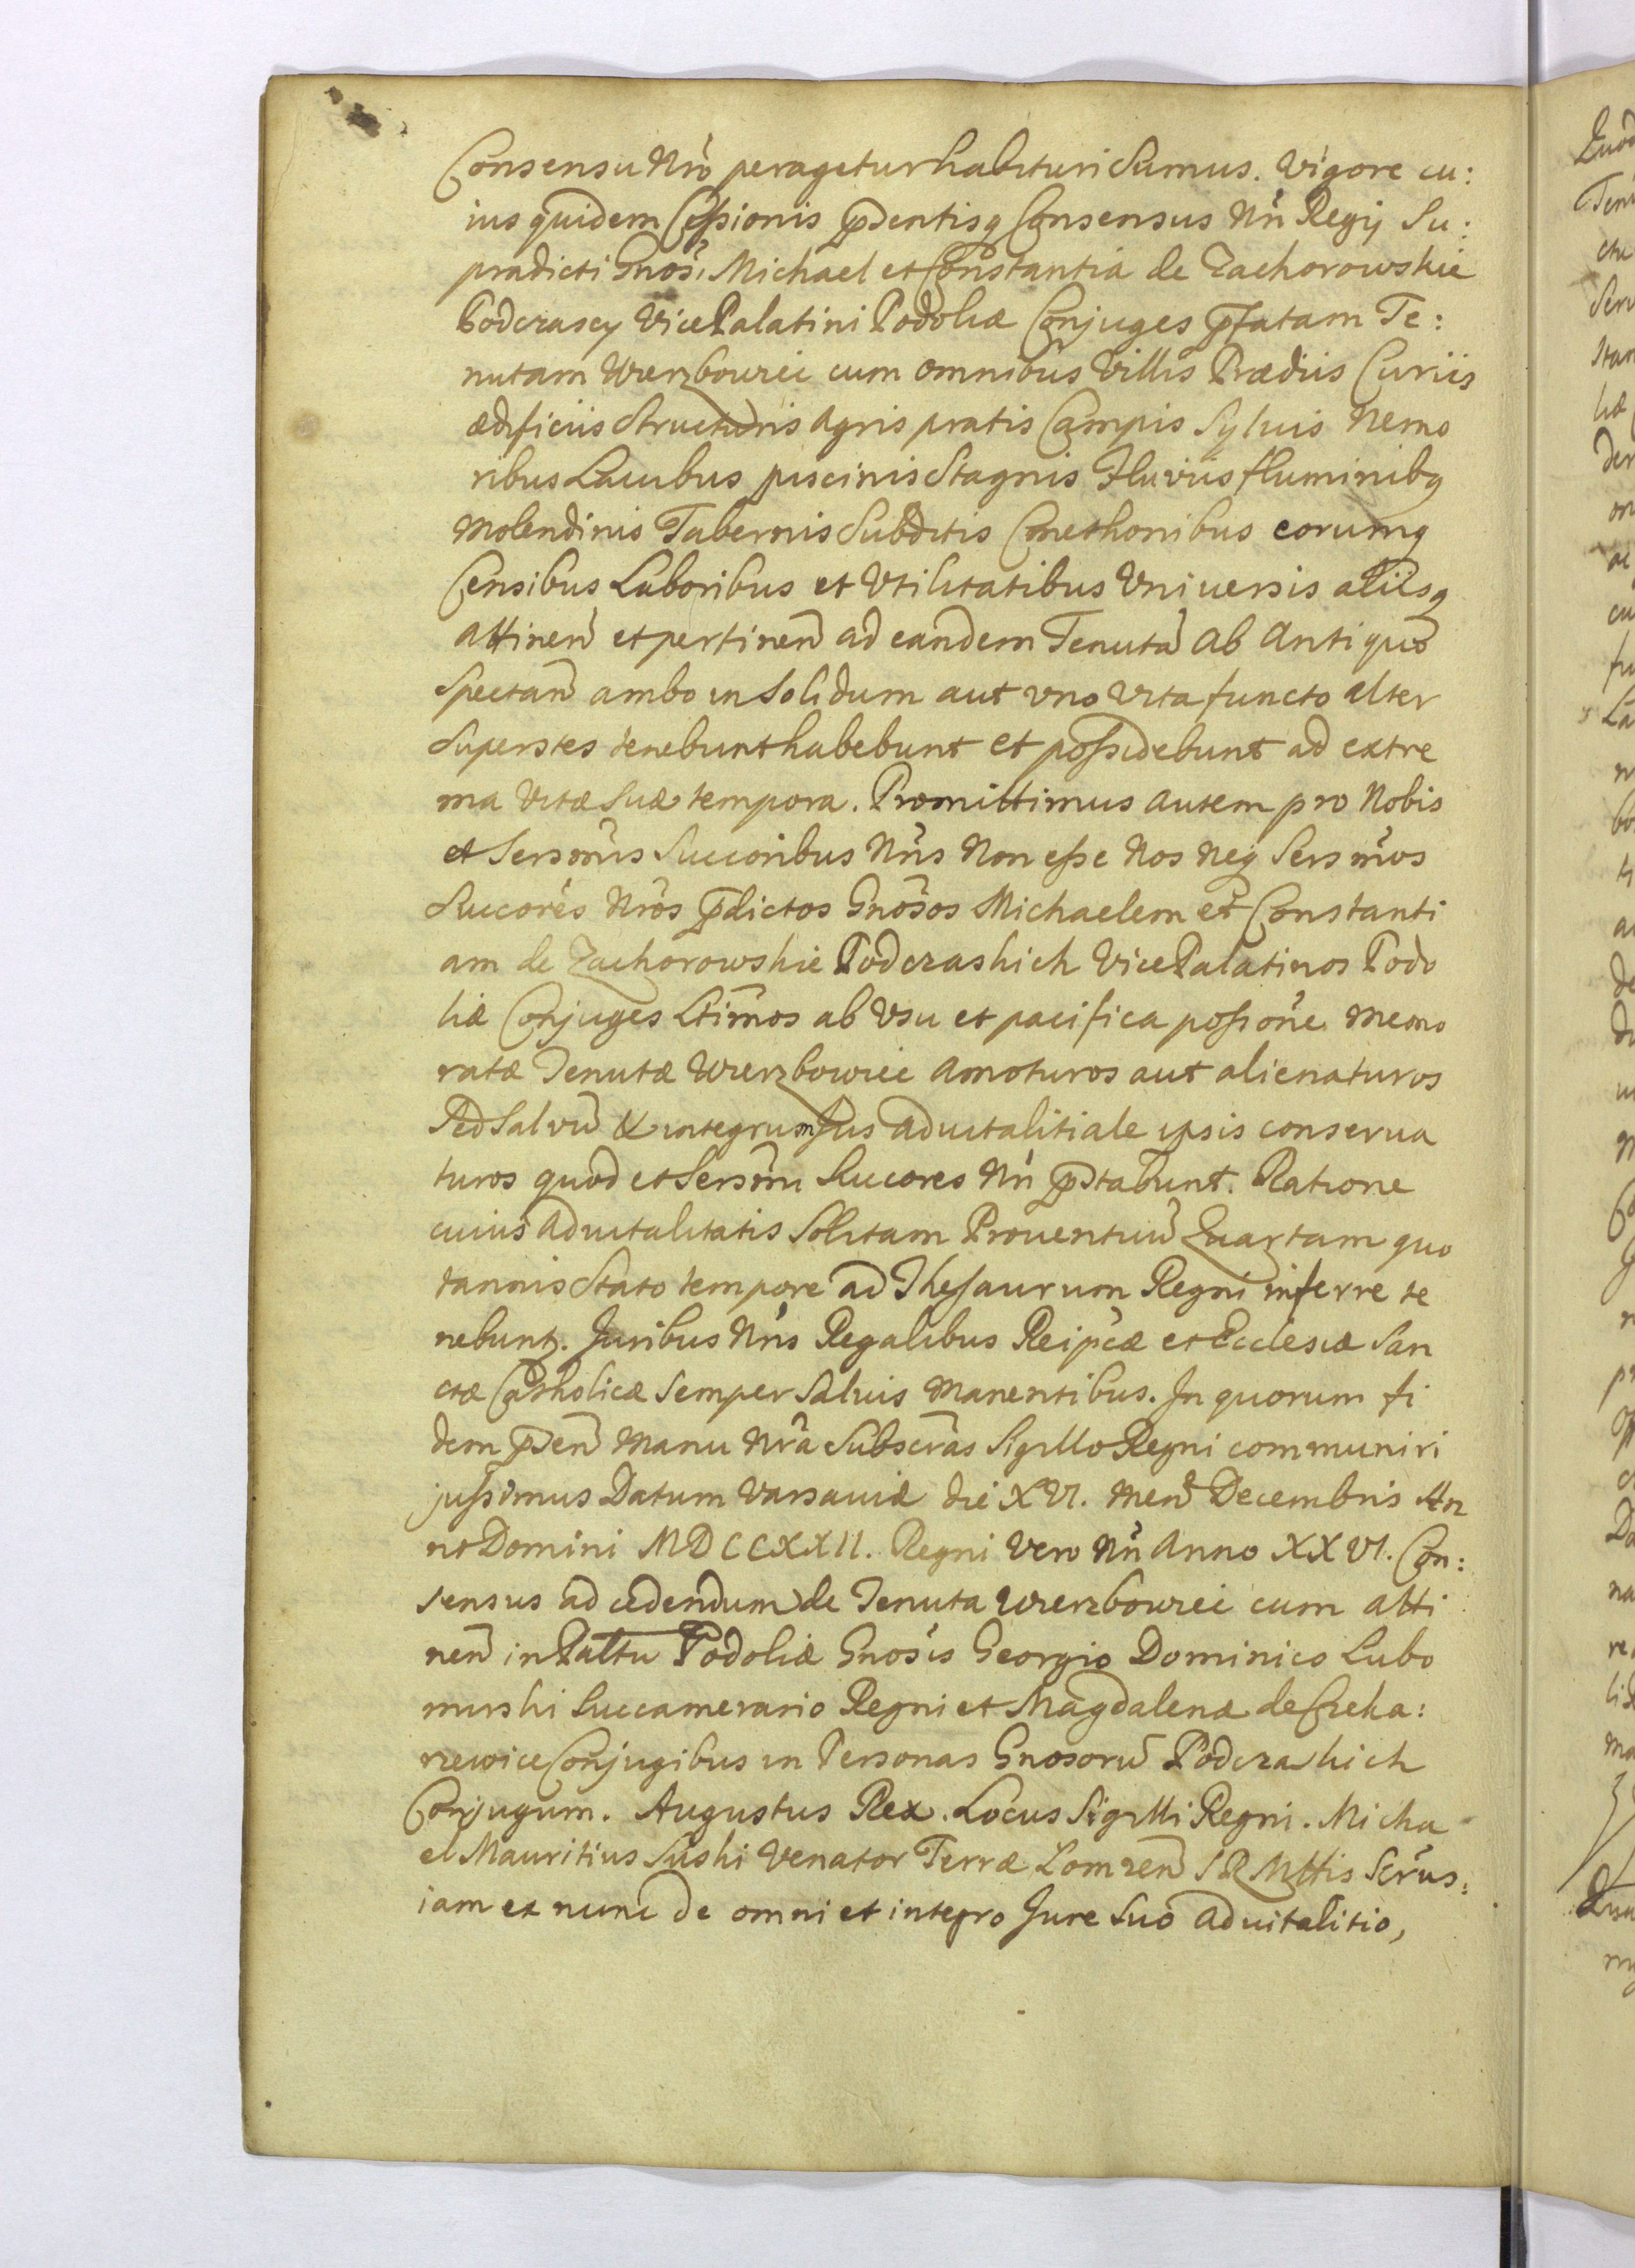 Consensu Nrô peragetur habituri sumus. Vigore cu:
ius quidem Cessionis p̄sentisq Consensus Nri Regij Su:
pradicti Gnosi Michael et Constantia de Zachorowskie
Podczascy VicePalatini Podoliæ Conjuges p̄fatam Te:
nutam Wierzbowiec cum omnibus Villis Prædiis Curiis
ædificiis Structuris Agris pratis Campis Sylvis Nemo
ribus Lacubus piscinis Stagnis Fluviis fluminibq
Molendinis Tabernis Subditis Cmethonibus eorumq
Censibus Laboribus et Vtilitatibus Vniuersis aliisq
attinen̄ et pertinen̄ ad eandem Tenutā ab antiquo
Spectan̄ ambo in Solidum aut vno Vita functo alter
Superstes tenebunt habebunt et possidebunt ad extre
ma Vitæ Suæ tempora. Promittimus autem pro Nobis
et Sersm̄is Succoribus Nr̄is Non esse Nos Neq Sersm̄os
Succorēs Nr̄os p̄dictos Gnōsos Michaelem et Constanti
am de Zachorowskie Podczaskich VicePalatinos Podo
liæ Conjuges Ltim̄os ab Vsu et pacifica possōne memo
ratæ Tenutæ Wierzbowiec amoturos aut alienaturos
Sed Salvū & integrum Jus aduitalitiale ipsis conserua
turos quod et Sersm̄i Succores Nr̄i p̄stabunt. Ratione
cuius aduitalitatis Solitam Prouentuū Quartam quo
tannis Stato tempore ad Thesaurum Regni inferre te
nebuntr. Juribus Nr̄is Regalibus Reipcæ et Ecclesiæ San
ctæ Catholicæ Semper Saluis manentibus. In quorum fi
dem p̄sen̄ Manu Nr̄a Subscrās Sigillo Regni communiri
jussimus Datum Varsauiæ die XVI. Men̄s Decembris An
no Domini MDCCXXII. Regni Vero Nr̄i Anno XXVI. Con:
sensus ad cedendum de Tenuta Wierzbowiec cum atti
nen̄ in Palttu Podoliæ Gnosis Georgio Dominico Lubo
mirski Succamerario Regni et Magdalenæ de
Conjugibus in Personas Gnosorū Podczaskich
Conjugum. Augustus Rex. Locus Sigilli Regni. Micha
el Mauritius Suski Venator Terræ Łomzen̄ S R Mttis Scrūs:
iam et nunc de omni et integro Jure Suo aduitalitio,